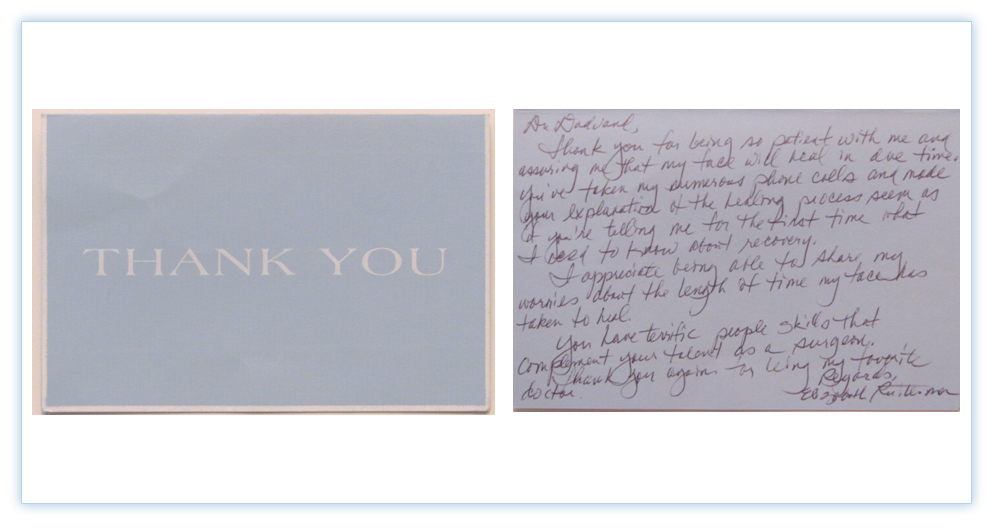 THANK YOU
Dr. Dadvand,
Thank you for being so patient with me and
assuring me that my face will heal in due time.
You've taken my numerous phone calls and made
your explanation of the healing process seem as
if you're telling me for the first time what
I need to know about recovery.
I appreciate being able to share my
worries about the length of time my face has
taken to heal.
You have terrific people skills that
complement your talent as a surgeon.
Thank you again for being my favorite
doctor.
Regards,
Elizabeth